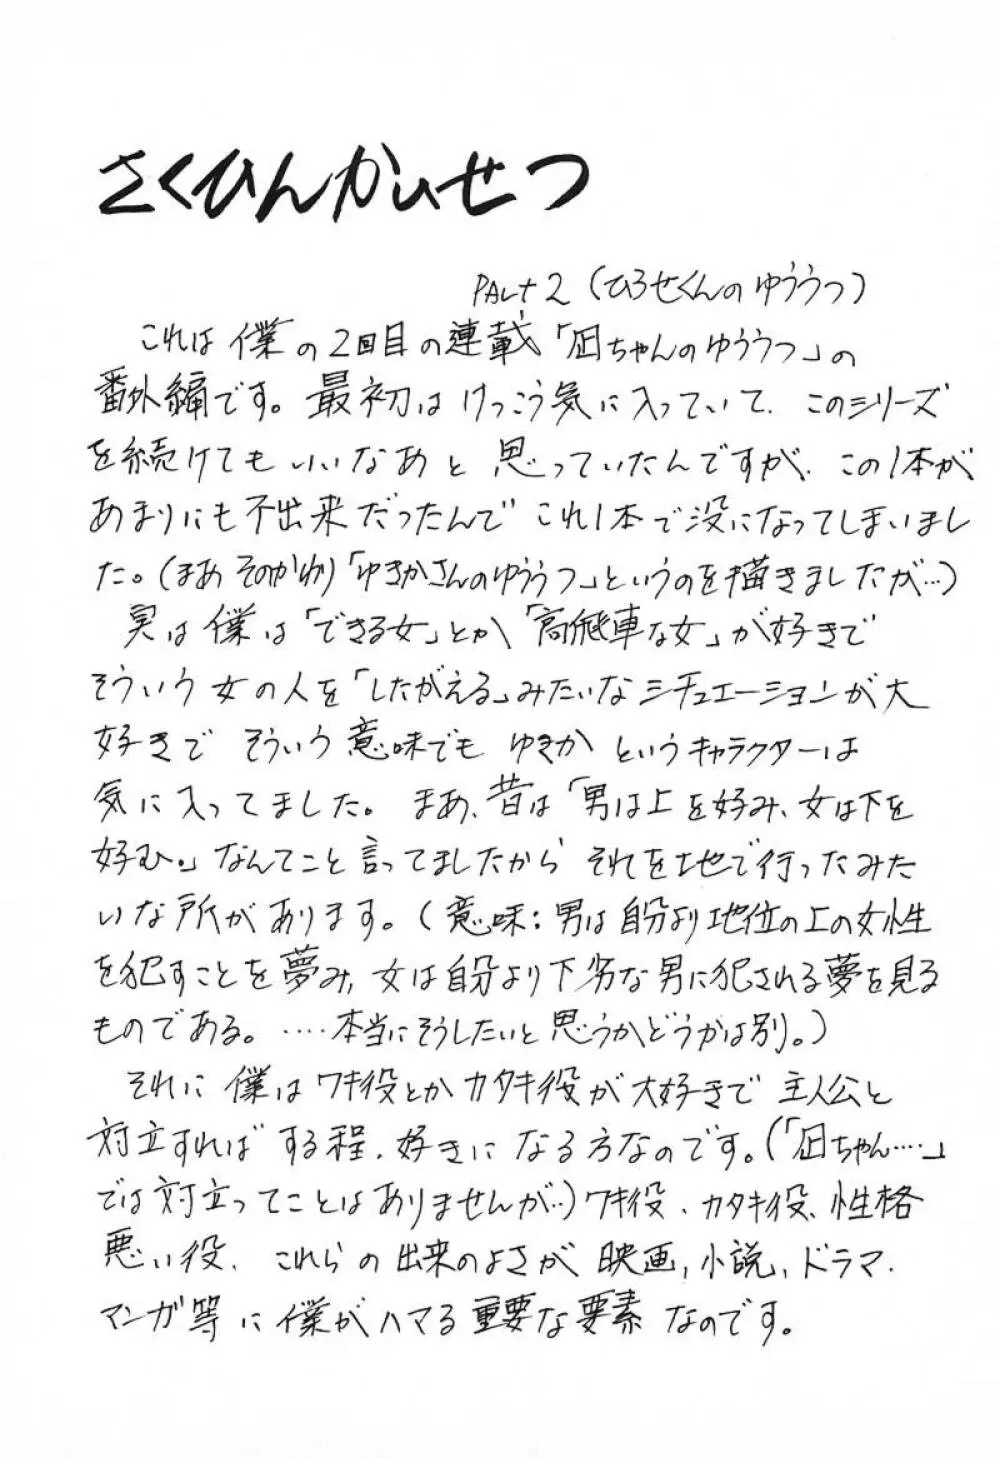 さくひんかいせつ
PALt 2 (ひろせくんのゆううつ)
これは僕の2回目の連載「凪ちゃんのゆううつ」の
番外編です。最初はけっこう気に入っていて、このシリーズ
を続けてもいいなあと思っていたんですが、この1本が
あまりにも不出来だったんでこれ1本で没になってしまいまし
た。(まあそのかわり「ゆきかさんのゆううつ」というのを描きましたが…)
実は僕は「できる女」とか「高飛車な女」が好きで
そういう女の人を「したがえる」みたいなシチュエーションが大
好きでそういう意味でもゆきかというキャラクターは
気に入ってました。まあ、昔は「男は上を好み、女は下を
好む。」なんてこと言ってましたからそれを地で行ったみた
いな所があります。(意味:男は自分より地位の上の女性
を犯すことを夢み、女は自分より下劣な男に犯される夢を見る
ものである。……本当にそうしたいと思うかどうかは別。)
それに僕はワキ役とかカタキ役が大好きで主人公と
対立すればする程、好きになる方なのです。(「凪ちゃん……」
では対立ってことはありませんが…)ワキ役、カタキ役、性格
悪い役、これらの出来のよさが映画、小説、ドラマ、
マンガ等に僕がハマる重要な要素なのです。